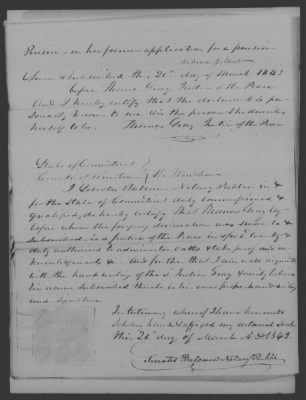 Pension, on her former application for a pension
Sworn & subscribed this 20th day of March 1843
before Thomas Gray Justice of the Peace
And I hereby certify that the declarant is per-
sonally known to me is the person she describes
herself to be, Thomas Gray Justice of the Peace
State of Connecticut
County of Windham Ss Windham
I Notary Public in &
for the State of Connecticut duly commissioned &
qualified, do hereby certify that Thomas Gray Esq
before whom the foregoing declaration was sworn to &
subscribed, is a Justice of the Peace in & for sd County &
duly authorized to administer oaths & take
And further that I am well acquainted
with the hand writing of the sd Justice Gray and believe
his name subscribed thereto is his own proper hand writing
and signature
In testimony whereof I have hereunto
set my hand & affixed my notarial seal
this 20th day of March AD 1843.
Notary Public